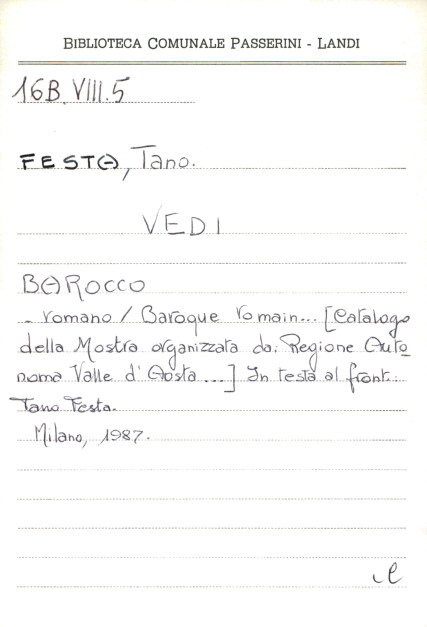 BIBLIOTECA COMUNALE PASSERINI - LANDI
16B.VIII.5
FESTA, Tano.
VEDI
BAROCCO
- romano / Baroque romain... [Catalogo
della Mostra organizzata da: Regione Auto
noma Valle d'Aosta ...] In testa al front.:
Tano Festa.
Milano, 1987.